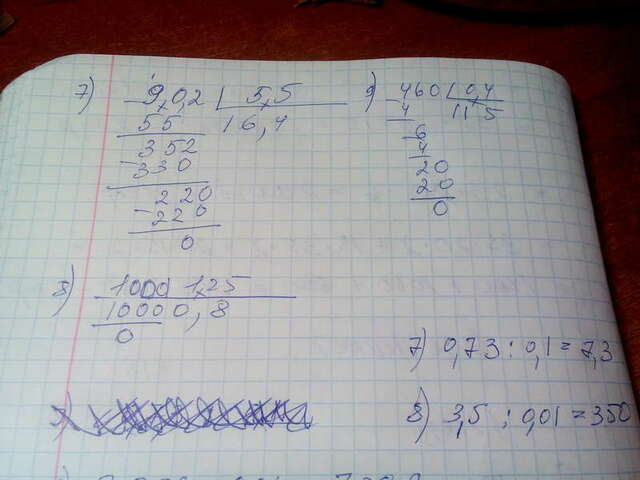 7) 9,0,2 | 5,5
55 16,4
352
330
220
220
0
8) 1000 | 1,25
1000 0,8
0
9) 460 | 0,4
4 115
6
4
20
20
0
7) 0,73 : 0,1 = 7,3
8) 3,5 : 0,01 = 350